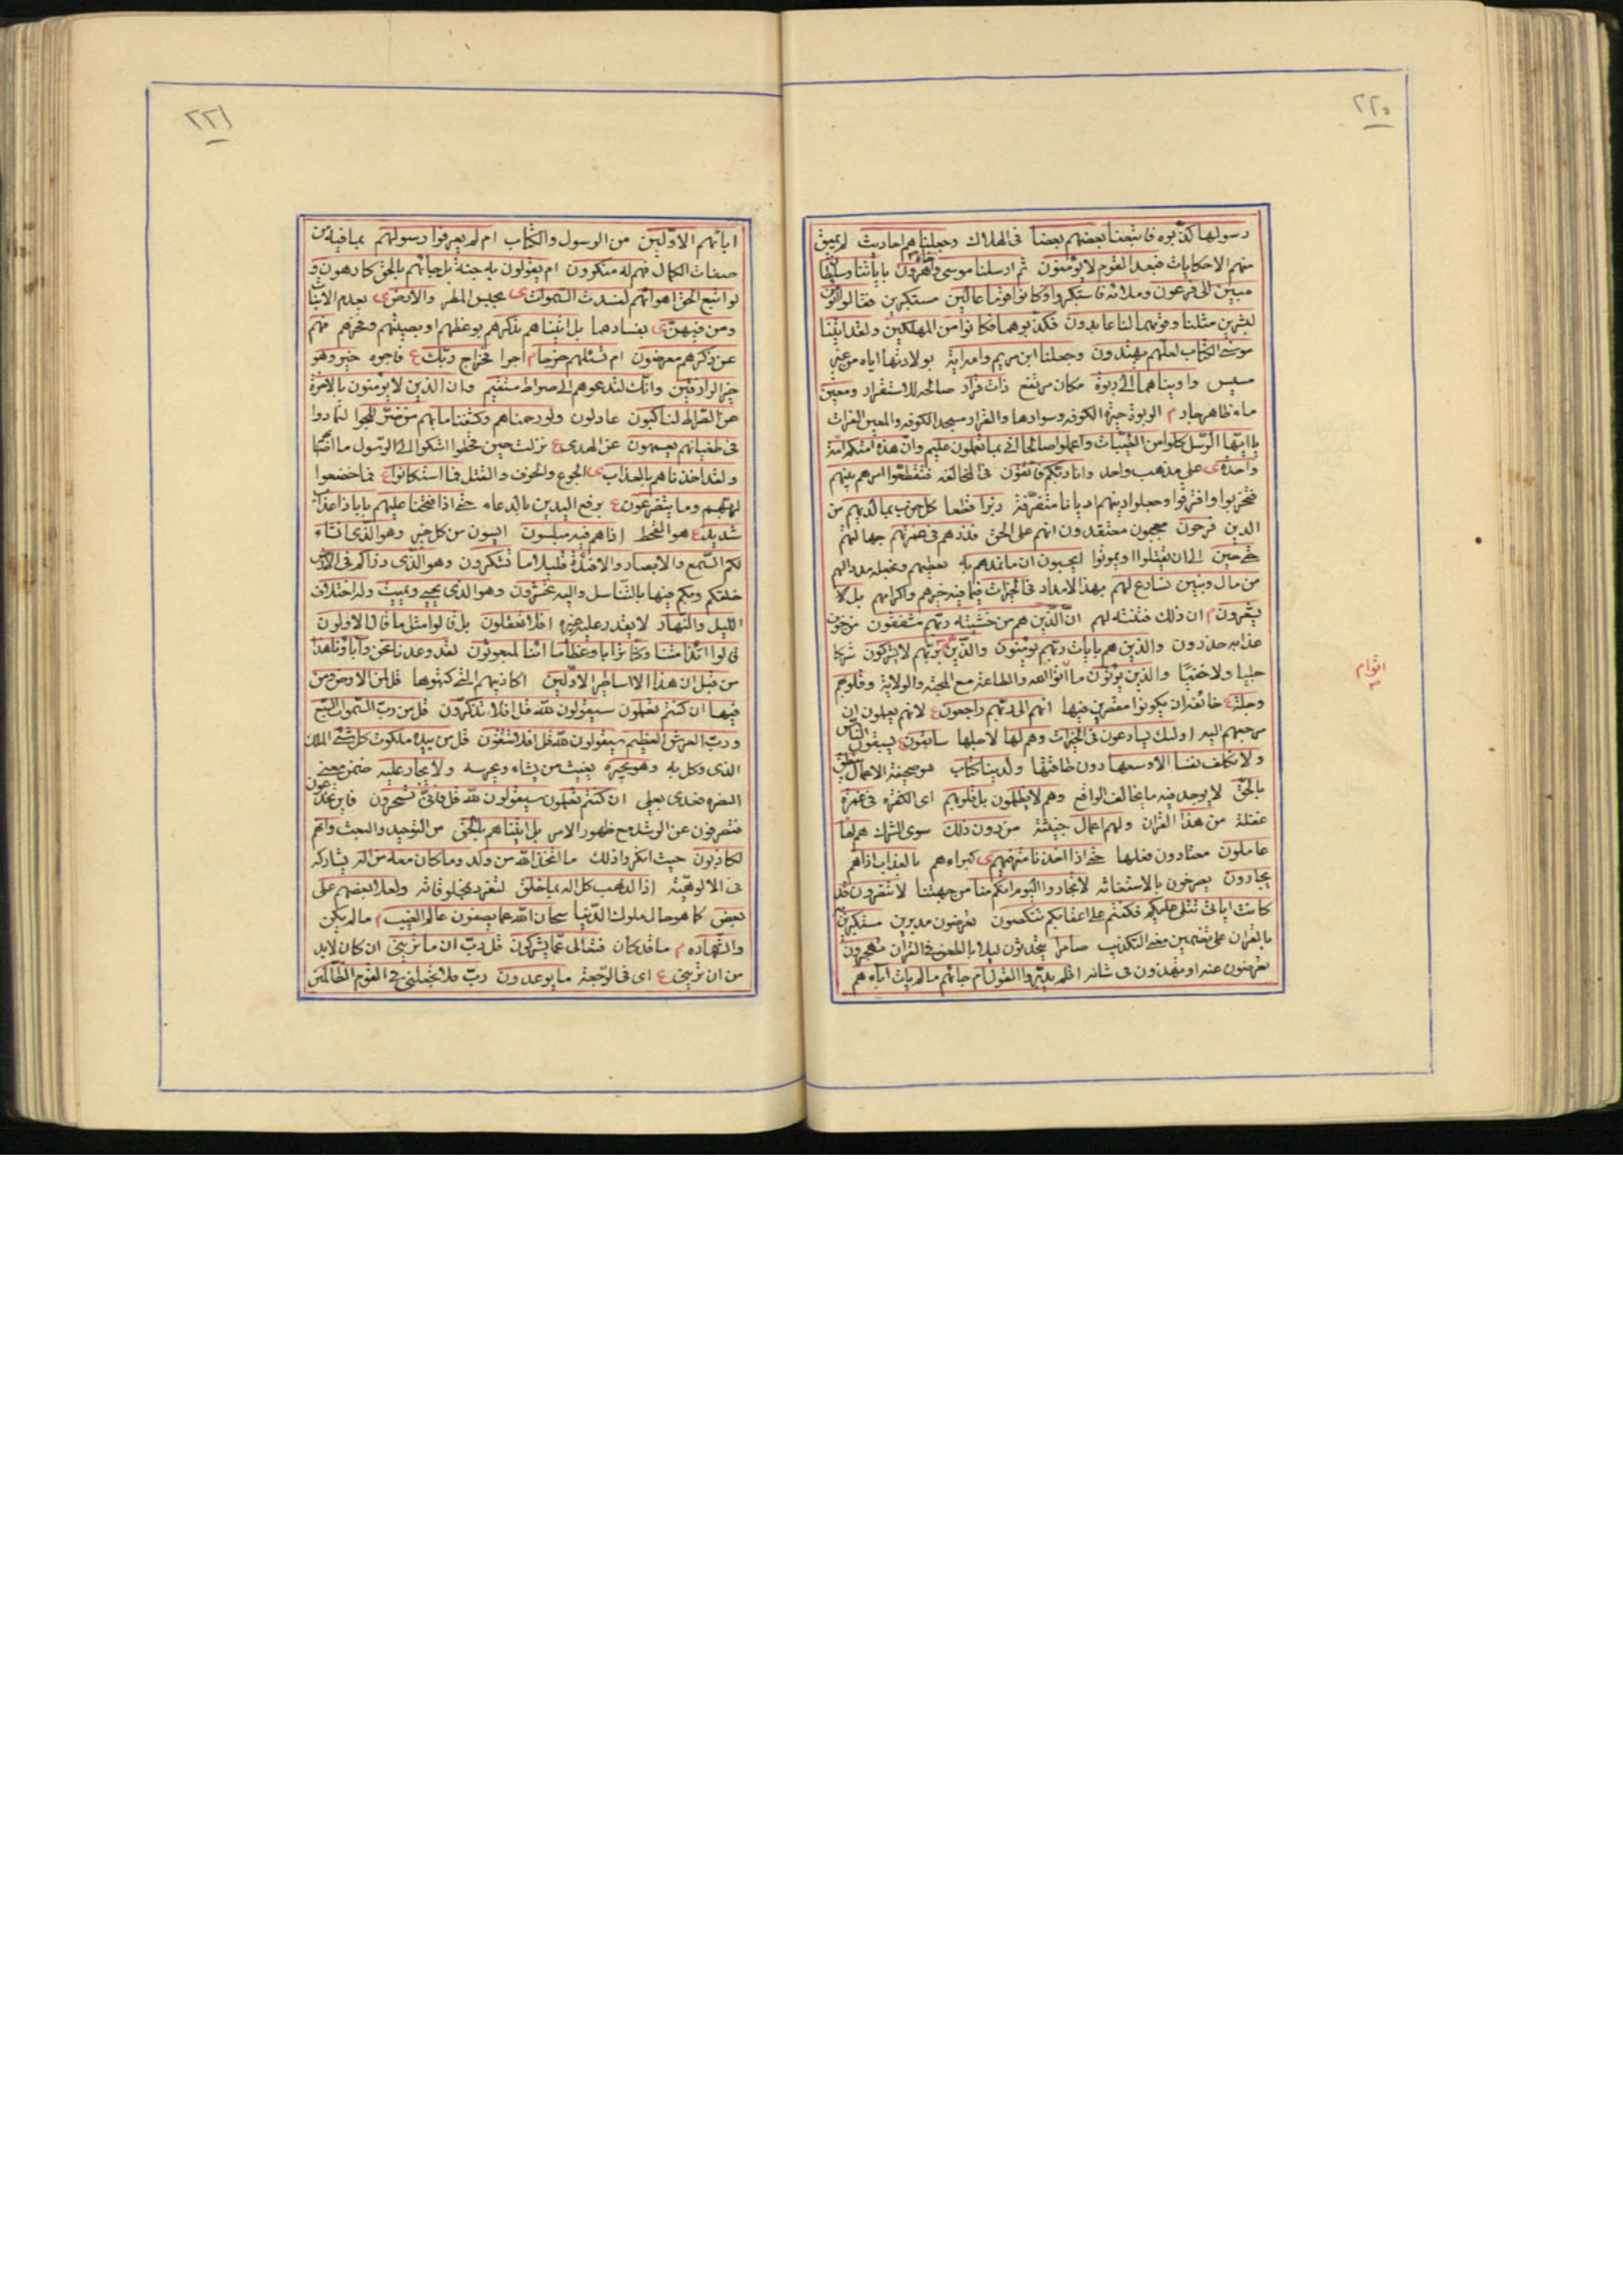 ٢٢٠
رسولها كذبوه فاتبعنا بعضهم بعضا فى الهلاك وجعلناهم احاديث لم يبق
منهم الا حكايات فبعدا لقوم لا يؤمنون ثم ارسلنا موسى واخاه هرون باياتنا وسلطان
مبين الى فرعون وملائه فاستكبروا وكانوا قوما عالين متكبرين فقالوا انؤمن
لبشرين مثلنا وقومهما لنا عابدون فكذبوهما فكانوا من المهلكين ولقد اتينا
موسى الكتاب لعلهم يهتدون وجعلنا ابن مريم وامه اية بولادتها اياه من غير
مسيس واويناهما الى ربوة مكان مرتفع ذات قرار صالحه للاستقرار ومعين
ماء ظاهر جار م الربوة حيرة الكوفه وسوادها والقرار مسجد الكوفه والمعين الفرات
يا ايها الرسل كلوا من الطيبات واعملوا صالحا انى بما تعملون عليم وان هذه امتكم امة
واحدة ى على مذهب واحد وانا ربكم فاتقون فى المخالفه فتقطعوا امرهم بينهم
فتحزبوا وافترقوا وجعلوا دينهم اديانا متفرقة زبرا قطعا كل حزب بما لديهم من
الدين فرحون معجبون معتقدون انهم على الحق فذرهم فى غمرتهم جهالتهم
حتى حين الى ان يقتلوا او يموتوا ايحسبون ان ما نمدهم به نعطيهم ونجعله مددا لهم
من مال وبنين نسارع لهم بهذا الامداد فى الخيرات فيما فيه خيرهم واكرامهم بل لا
يشعرون م ان ذلك فتنة لهم ان الذين هم من خشية ربهم مشفقون من خوف
عذابه حذرون والذين هم بايات ربهم يؤمنون والذين هم بربهم لا يشركون شركا
جليا ولا خفيا والذين يؤتون ما اتوا الله والطاعة مع المحبة والولاية وقلوبهم
اتوا م
وجلة ع خائفة ان يكونوا مقصرين فيها انهم الى ربهم راجعون ع لانهم يعلمون ان
مرجعهم اليه اولئك يسارعون فى الخيرات وهم لها لاجلها سابقون ع يسبقون الناس
ولا نكلف نفسا الا وسعها دون طاقتها ولدينا كتاب هو صحيفة الاعمال ينطق
بالحق لا يوجد فيه ما يخالف الواقع وهم لا يظلمون بل قلوبهم اى الكفره فى غمرة
غفلة من هذا القران ولهم اعمال خبيثة من دون ذلك سوى الشرك هم لها
عاملون معتادون فعلها حتى اذا اخذنا مترفيهم ى كبراءهم بالعذاب اذا هم
يجارون يصرخون بالاستغاثه لا تجاروا اليوم انكم منا من جهتنا لا تنصرون قد
كانت اياتى تتلى عليكم فكنتم على اعقابكم تنكصون تعرضون مدبرين مستكبرين به
بالقران على تضمين معنى التكذيب سامرا يتحدثون ليلا بالطعن فى القران تهجرون
تعرضون عنه او تهذون فى شانه افلم يدبروا القول ام جاءهم ما لم يات اباءهم
٢٢١
اباءهم الاولين من الرسول والكتاب ام لم يعرفوا رسولهم بما فيه من
صفات الكمال فهم له منكرون ام يقولون به جنة بل جاءهم بالحق كارهون و
لو اتبع الحق اهواءهم لفسدت السموات ى بحبس المطر والارض ى بعدم الانبات
ومن فيهن ى بفسادهما بل اتيناهم بذكرهم بوعظهم او بصيتهم وفخرهم فهم
عن ذكرهم معرضون ام تسئلهم خرجا م اجرا فخراج ربك ع فاجره خير وهو
خير الرازقين وانك لتدعوهم الى صراط مستقيم وان الذين لا يؤمنون بالاخرة
عن الصراط لناكبون عادلون ولو رحمناهم وكشفنا ما بهم من ضر للجوا لتمادوا
فى طغيانهم يعمهون عن الهدى ع نزلت حين قحطوا اشتكوا الى الرسول ما اصابهم
ولقد اخذناهم بالعذاب ى الجوع والخوف والقتل فما استكانوا ع فما خضعوا
لربهم وما يتضرعون ع برفع اليدين بالدعاء حتى اذا فتحنا عليهم بابا ذا عذاب
شديد ع هو القحط اذا هم فيه مبلسون ايسون من كل خير وهو الذى انشاء
لكم السمع والابصار والافئدة قليلا ما تشكرون وهو الذى ذراكم فى الارض
خلقكم وبثكم فيها بالتناسل واليه تحشرون وهو الذى يحيى ويميت وله اختلاف
الليل والنهار لا يقدر عليه غيره افلا تعقلون بل قالوا مثل ما قال الاولون
قالوا ائذا متنا وكنا ترابا وعظاما ائنا لمبعوثون لقد وعدنا نحن واباؤنا هذا
من قبل ان هذا الا اساطير الاولين اكاذيبهم التى كتبوها قل لمن الارض ومن
فيها ان كنتم تعلمون سيقولون لله قل افلا تذكرون قل من رب السموات السبع
ورب العرش العظيم سيقولون لله قل افلا تتقون قل من بيده ملكوت كل شئ الملك
الذى وكل به وهو يجير يغيث من يشاء ويحرسه ولا يجار عليه ضمن معنى
النصره فعدى بعلى ان كنتم تعلمون سيقولون لله قل فانى تسحرون فاين تخدعون
فتصرفون عن الرشد مع ظهور الامر بل اتيناهم بالحق من التوحيد والبعث وانهم
لكاذبون حيث انكروا ذلك ما اتخذ الله من ولد وما كان معه من اله يشاركه
فى الالوهية اذا لذهب كل اله بما خلق لتفرد بمخلوقاته ولعلا بعضهم على
بعض كما هو حال ملوك الدنيا سبحان الله عما يصفون عالم الغيب م ما لم يكن
والشهاده م ما قد كان فتعالى عما يشركون قل رب ان ما تريني ان كان لابد
من ان تريني ع اى فى الرجعة ما يوعدون رب فلا تجعلنى فى القوم الظالمين